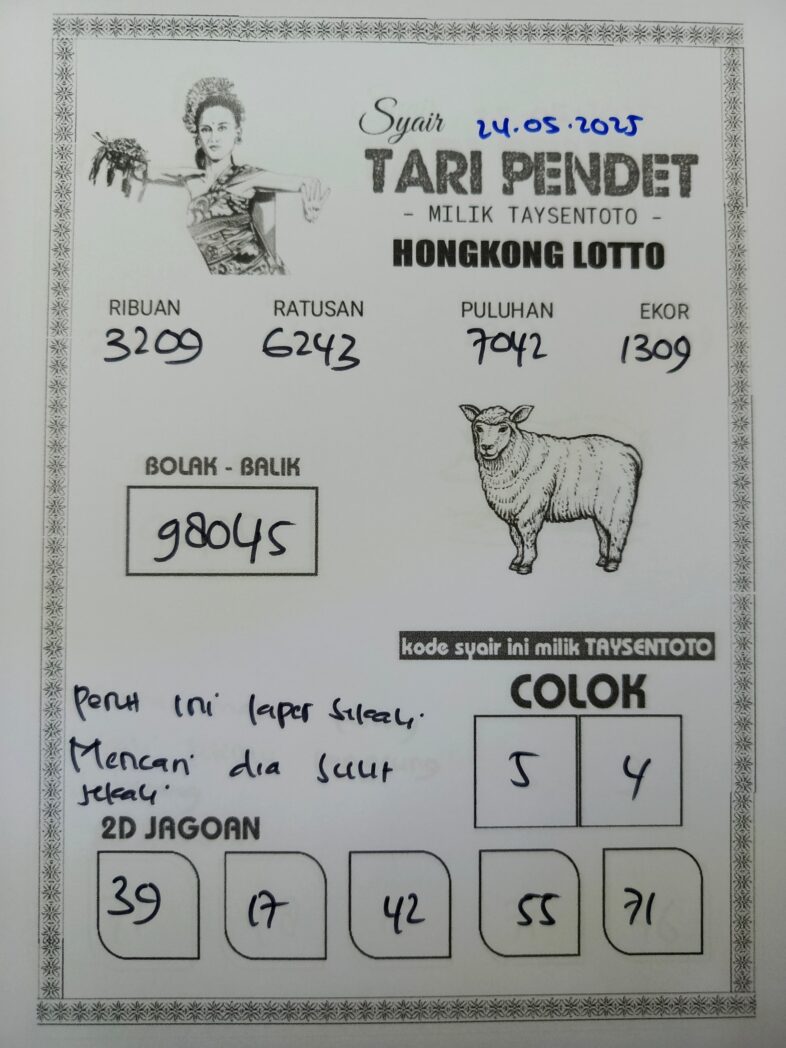 Syair 24.05.2025
TARI PENDET
- MILIK TAYSENTOTO -
HONGKONG LOTTO
RIBUAN RATUSAN PULUHAN EKOR
3209 6243 7042 1309
BOLAK - BALIK
98045
kode syair ini milik TAYSENTOTO
COLOK
5 4
Perut ini laper sekali.
Mencari dia sulit
sekali.
2D JAGOAN
39 17 42 55 71